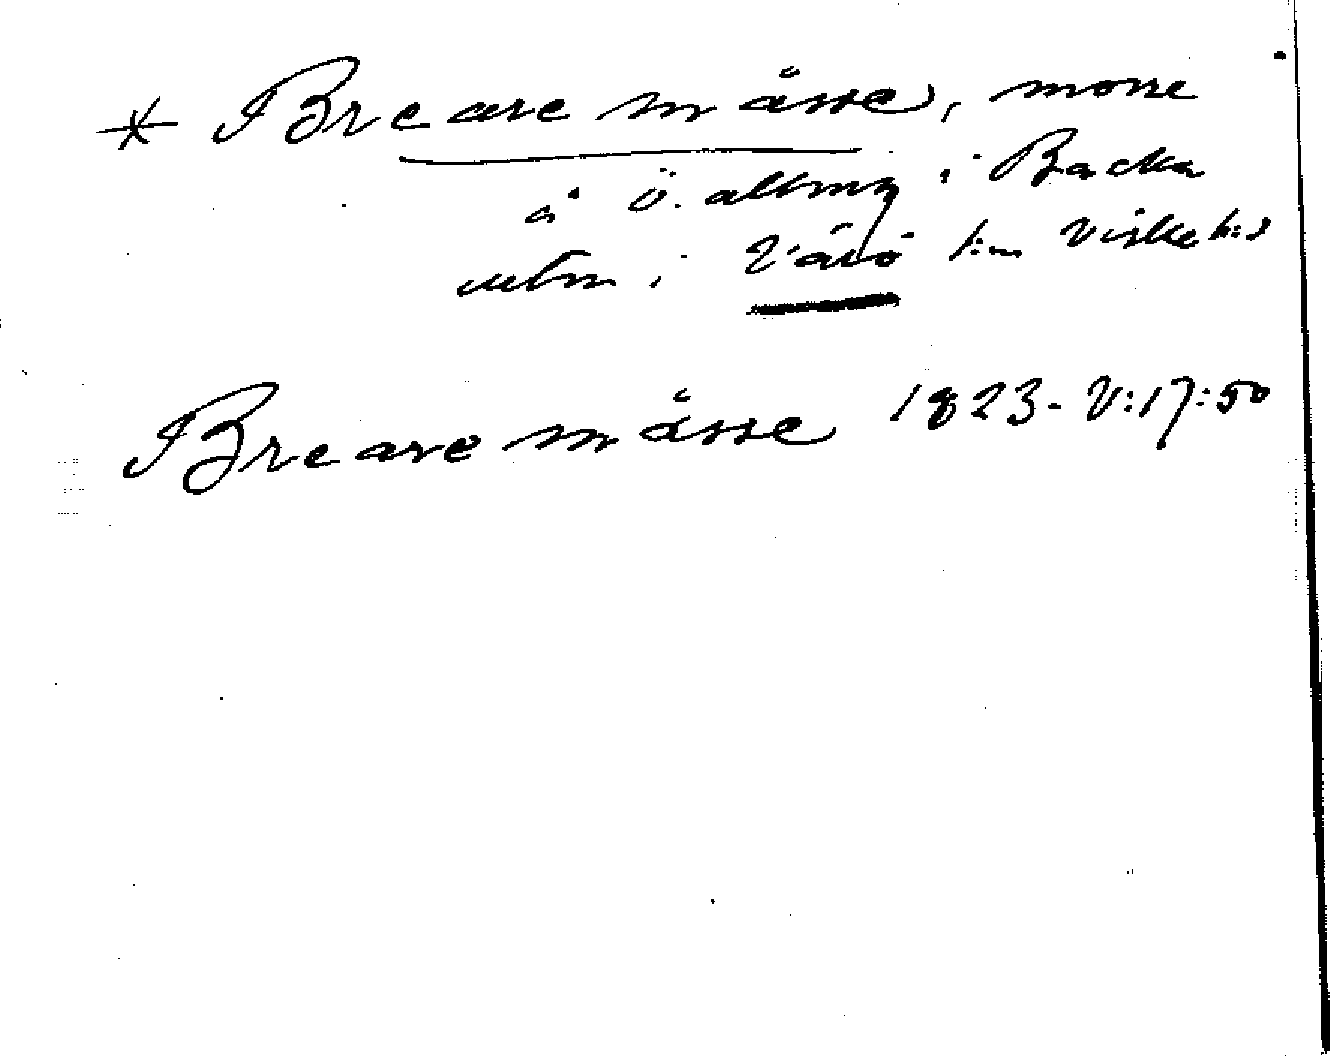 * Breare måsse, mosse
å ö. allmng i Backa
utm. i Värö sn Viske hd
Breare måsse 1823 - V:17:50